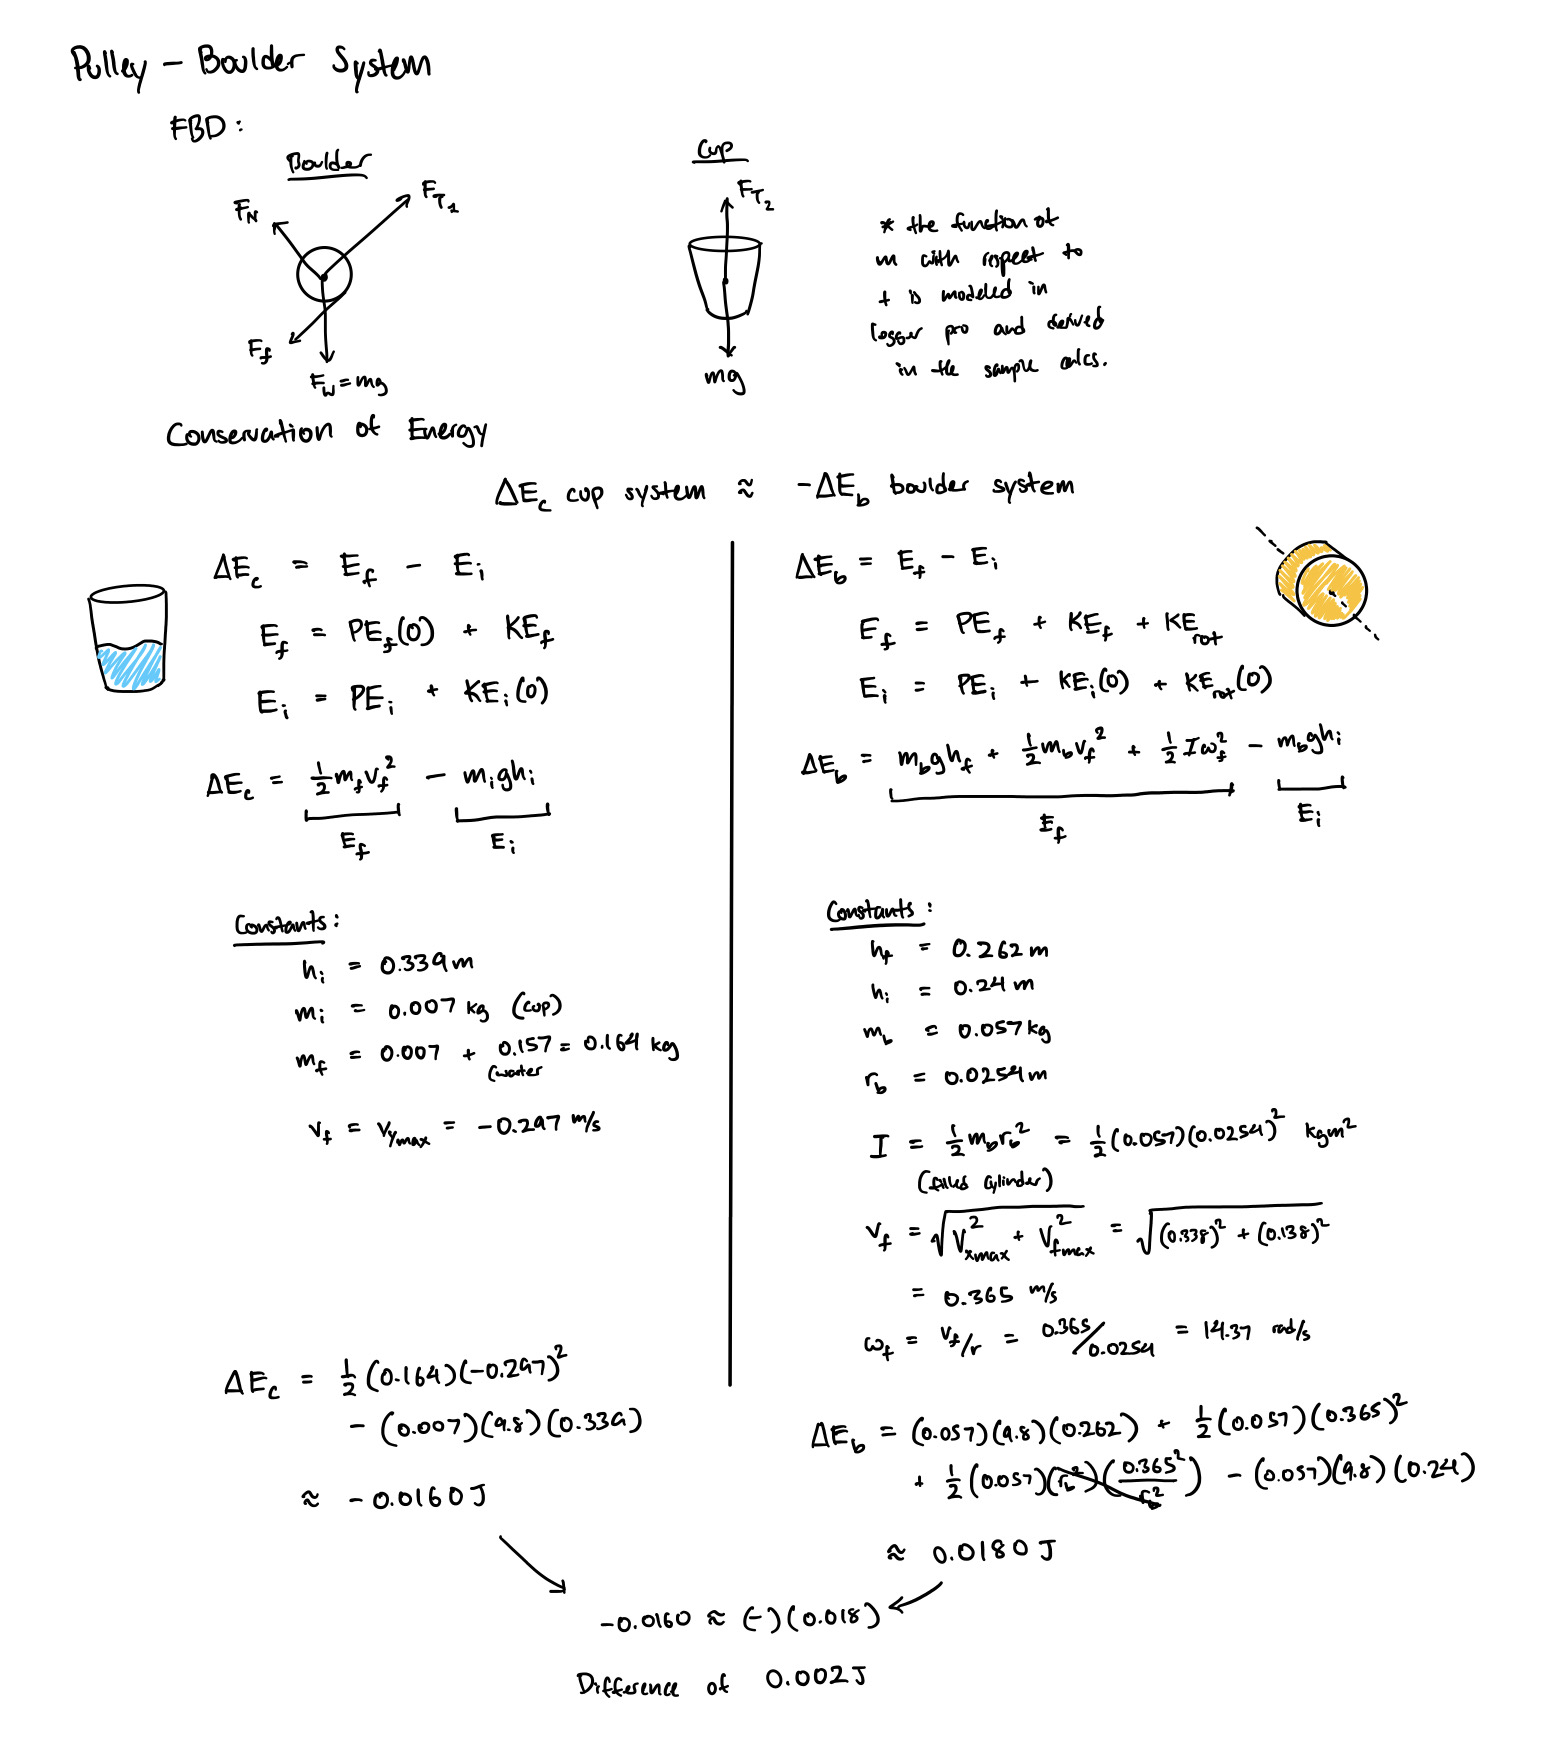 Pulley – Boulder System
FBD:
Boulder
F_N
F_T₁
F_f
F_W = mg
Cup
F_T₂
mg
* the function of
m with respect to
t is modeled in
logger pro and derived
in the sample calcs.
Conservation of Energy
ΔE_c cup system ≈ -ΔE_b boulder system
ΔE_c = E_f - E_i
E_f = PE_f(0) + KE_f
E_i = PE_i + KE_i(0)
ΔE_c = ½m_f v_f² - m_i g h_i
E_f E_i
Constants:
h_i = 0.339 m
m_i = 0.007 kg (cup)
m_f = 0.007 + 0.157 = 0.164 kg
(water
v_f = v_ymax = -0.297 m/s
ΔE_c = ½(0.164)(-0.297)²
- (0.007)(9.8)(0.339)
≈ -0.0160 J
ΔE_b = E_f - E_i
E_f = PE_f + KE_f + KE_rot
E_i = PE_i + KE_i(0) + KE_rot(0)
ΔE_b = m_b g h_f + ½m_b v_f² + ½Iω_f² - m_b g h_i
E_f E_i
Constants:
h_f = 0.262 m
h_i = 0.24 m
m_b = 0.057 kg
r_b = 0.0254 m
I = ½m_b r_b² = ½(0.057)(0.0254)² kgm²
(filled cylinder)
v_f = √(V_xmax² + V_fmax²) = √((0.338)² + (0.138)²)
= 0.365 m/s
ω_f = v_f/r = 0.365/0.0254 = 14.37 rad/s
ΔE_b = (0.057)(9.8)(0.262) + ½(0.057)(0.365)²
+ ½(0.057)(r_b²)(0.365²/r_b²) - (0.057)(9.8)(0.24)
≈ 0.0180 J
-0.0160 ≈ (-)(0.018)
Difference of 0.002 J